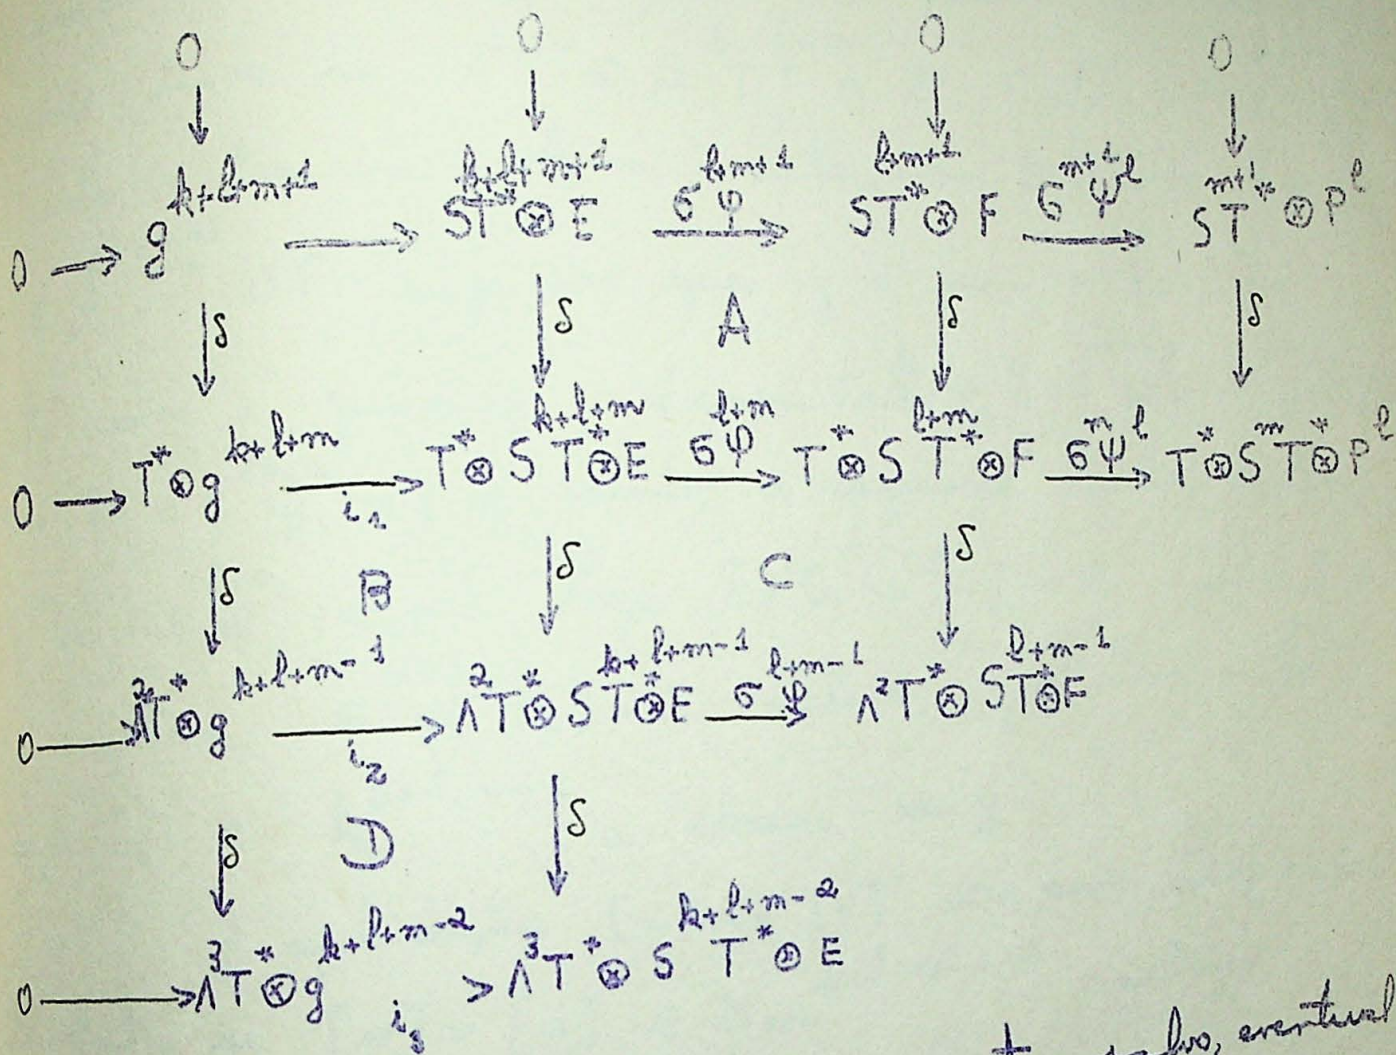 0 0 0 0
↓ ↓ ↓ ↓
0 → g^{k+l+m+1} → S^{k+l+m+1}T*⊗E →^{σ^{l+m+1}φ} S^{l+m+1}T*⊗F →^{σ^{m+1}ψ^l} S^{m+1}T*⊗P^l
↓δ ↓δ A ↓δ ↓δ
0 → T*⊗g^{k+l+m} →_{i_1} T*⊗S^{k+l+m}T*⊗E →^{σ^{l+m}φ} T*⊗S^{l+m}T*⊗F →^{σ^mψ^l} T*⊗S^mT*⊗P^l
↓δ B ↓δ C ↓δ
0 → Λ²T*⊗g^{k+l+m-1} →_{i_2} Λ²T*⊗S^{k+l+m-1}T*⊗E →^{σ^{l+m-1}φ} Λ²T*⊗S^{l+m-1}T*⊗F
↓δ D ↓δ
0 → Λ³T*⊗g^{k+l+m-2} →_{i_3} Λ³T*⊗S^{k+l+m-2}T*⊗E
eventual